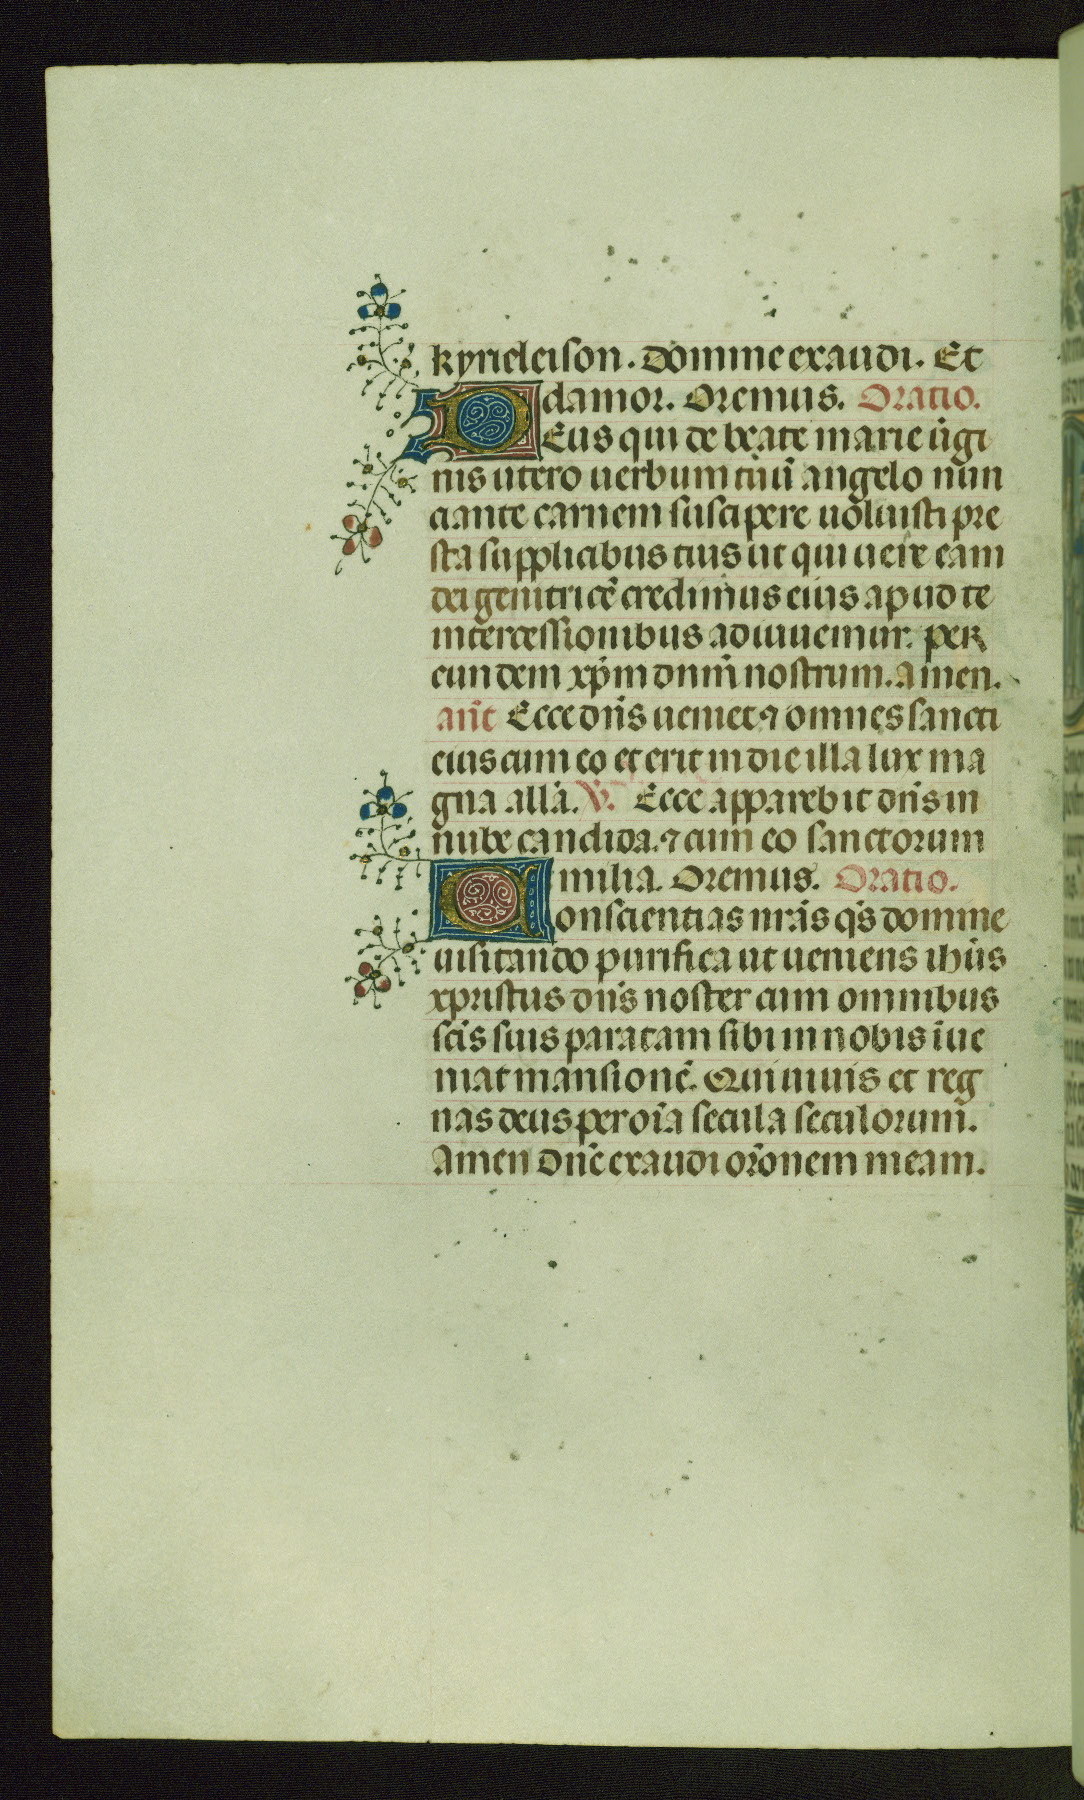 kyrieleison. Domine exaudi. Et
clamor. Oremus. Oratio.
Deus qui de beate marie v̄gi
nis utero uerbum tuū angelo nun
ciante carnem suscipere uoluisti pre
sta supplicibus tuis ut qui uere eam
dei genitricē credimus eius apud te
intercessionibus adiuuemur. per
eundem xp̄m dnm̄ nostrum. amen.
an̄t Ecce dn̄s ueniet ⁊ omnes sancti
eius cum eo et erit in die illa lux ma
gna all̄a. V̄. Ecce apparebit dn̄s in
nube candida. ⁊ cum eo sanctorum
milia. Oremus. Oratio.
Conscientias nr̄as q̄s domine
uisitando purifica ut ueniens ihūs
xpristus dn̄s noster cum omnibus
sc̄is suis paratam sibi in nobis īue
niat mansionē. Qui uiuis et reg
nas deus per oīa secula seculorum.
Amen Dn̄e exaudi or̄onem meam.